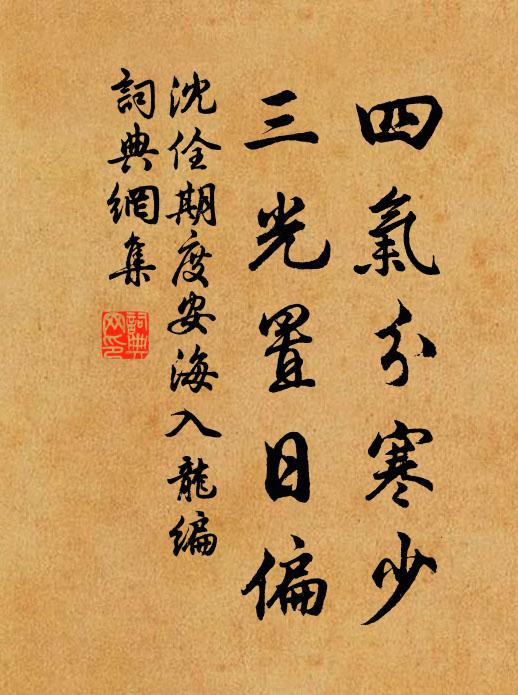 四氣分寒少
三光置日偏
沈佺期度安海入龍編
詞典網集
詞典網印